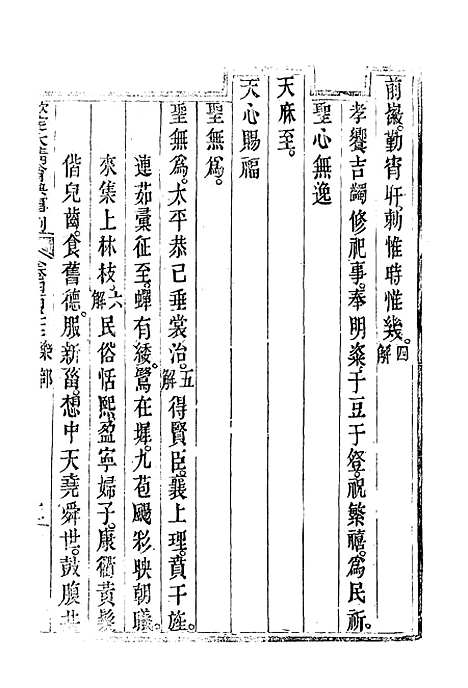 前徽。勤宵旰。勅惟時惟幾。四解
孝饗吉蠲修祀事。奉明粢。于豆于登。祝繁禧。爲民祈。
聖心無逸
天庥至。
天心賜福
聖無爲。
聖無爲。太平恭己垂裳治。五解得賢臣。襄上理。賁干旌。
連茹彙征至。蟬有緌。鷺在墀。九苞颺彩映朝曦。
來集上林枝。六解民俗恬熙。盈寧婦子。康衢黃髮
偕兒齒。食舊德。服新菑。想中天堯舜世。鼓腹
欽定大清會典事例 樂部